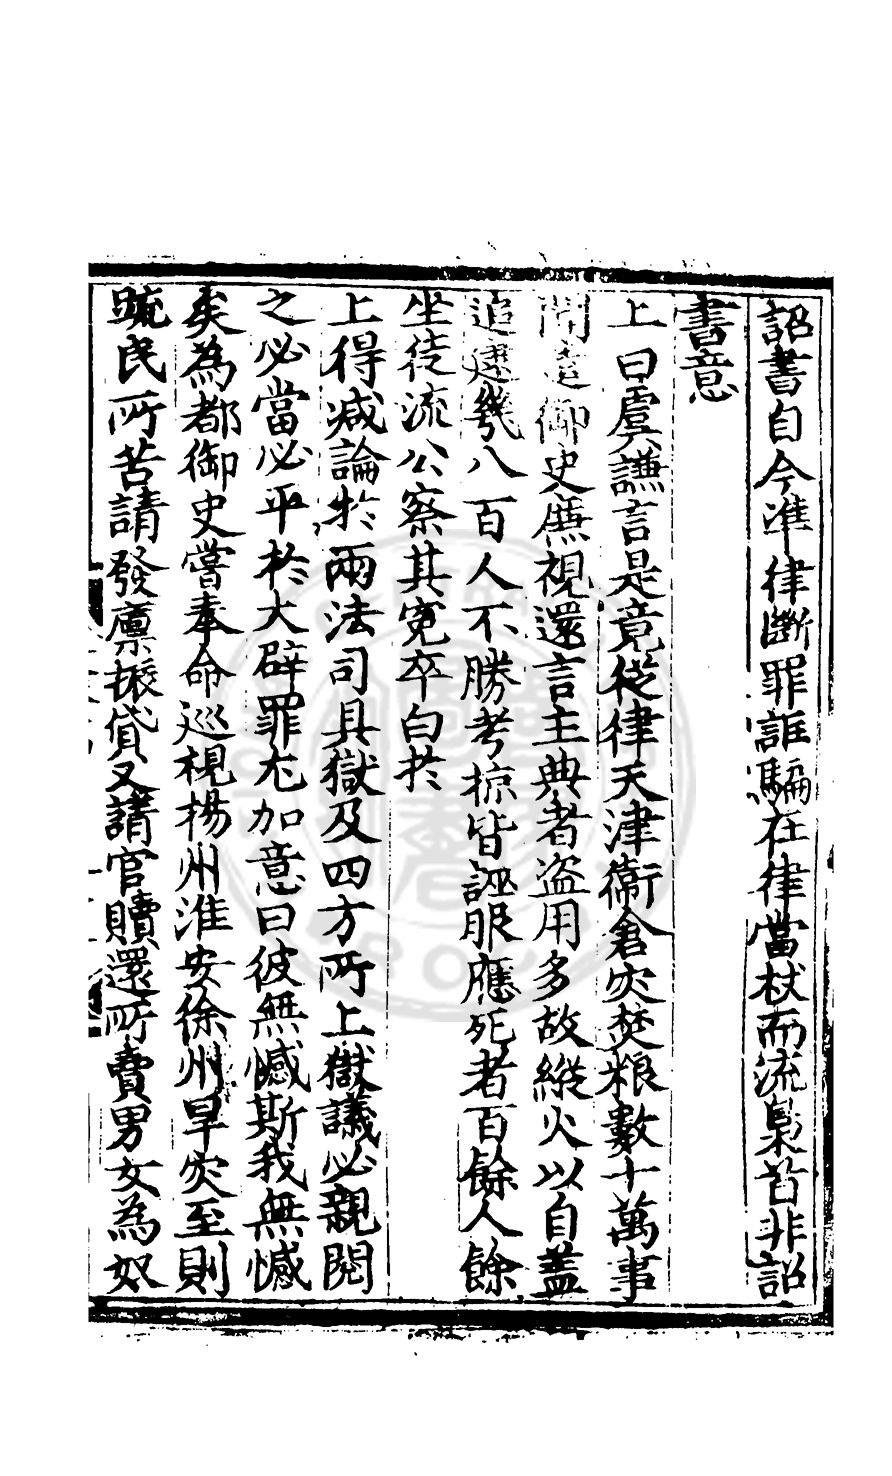 詔書自今準律斷罪誆騙在律當杖而流梟首非詔
書意
上曰虞謙言是竟從律天津衞倉灾焚粮數十萬事
聞遣御史廉視還言主典者盗用多故縱火以自盖
追逮幾八百人不勝考掠皆誣服應死者百餘人餘
坐徒流公察其寃卒白於
上得减論於兩法司具獄及四方所上獄議必親閱
之必當必平於大辟罪尤加意曰彼無憾斯我無憾
矣為都御史嘗奉命巡視楊州淮安徐州旱灾至則
䟽民所苦請發廪振貸又請官贖還所賣男女為奴